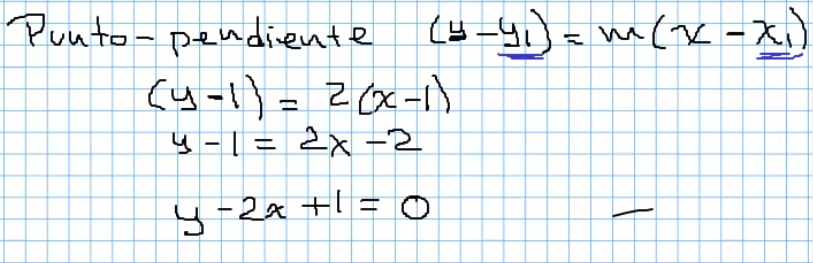 Punto-pendiente (y-y₁) = m(x-x₁)
(y-1) = 2(x-1)
y-1 = 2x-2
y-2x+1 = 0 —